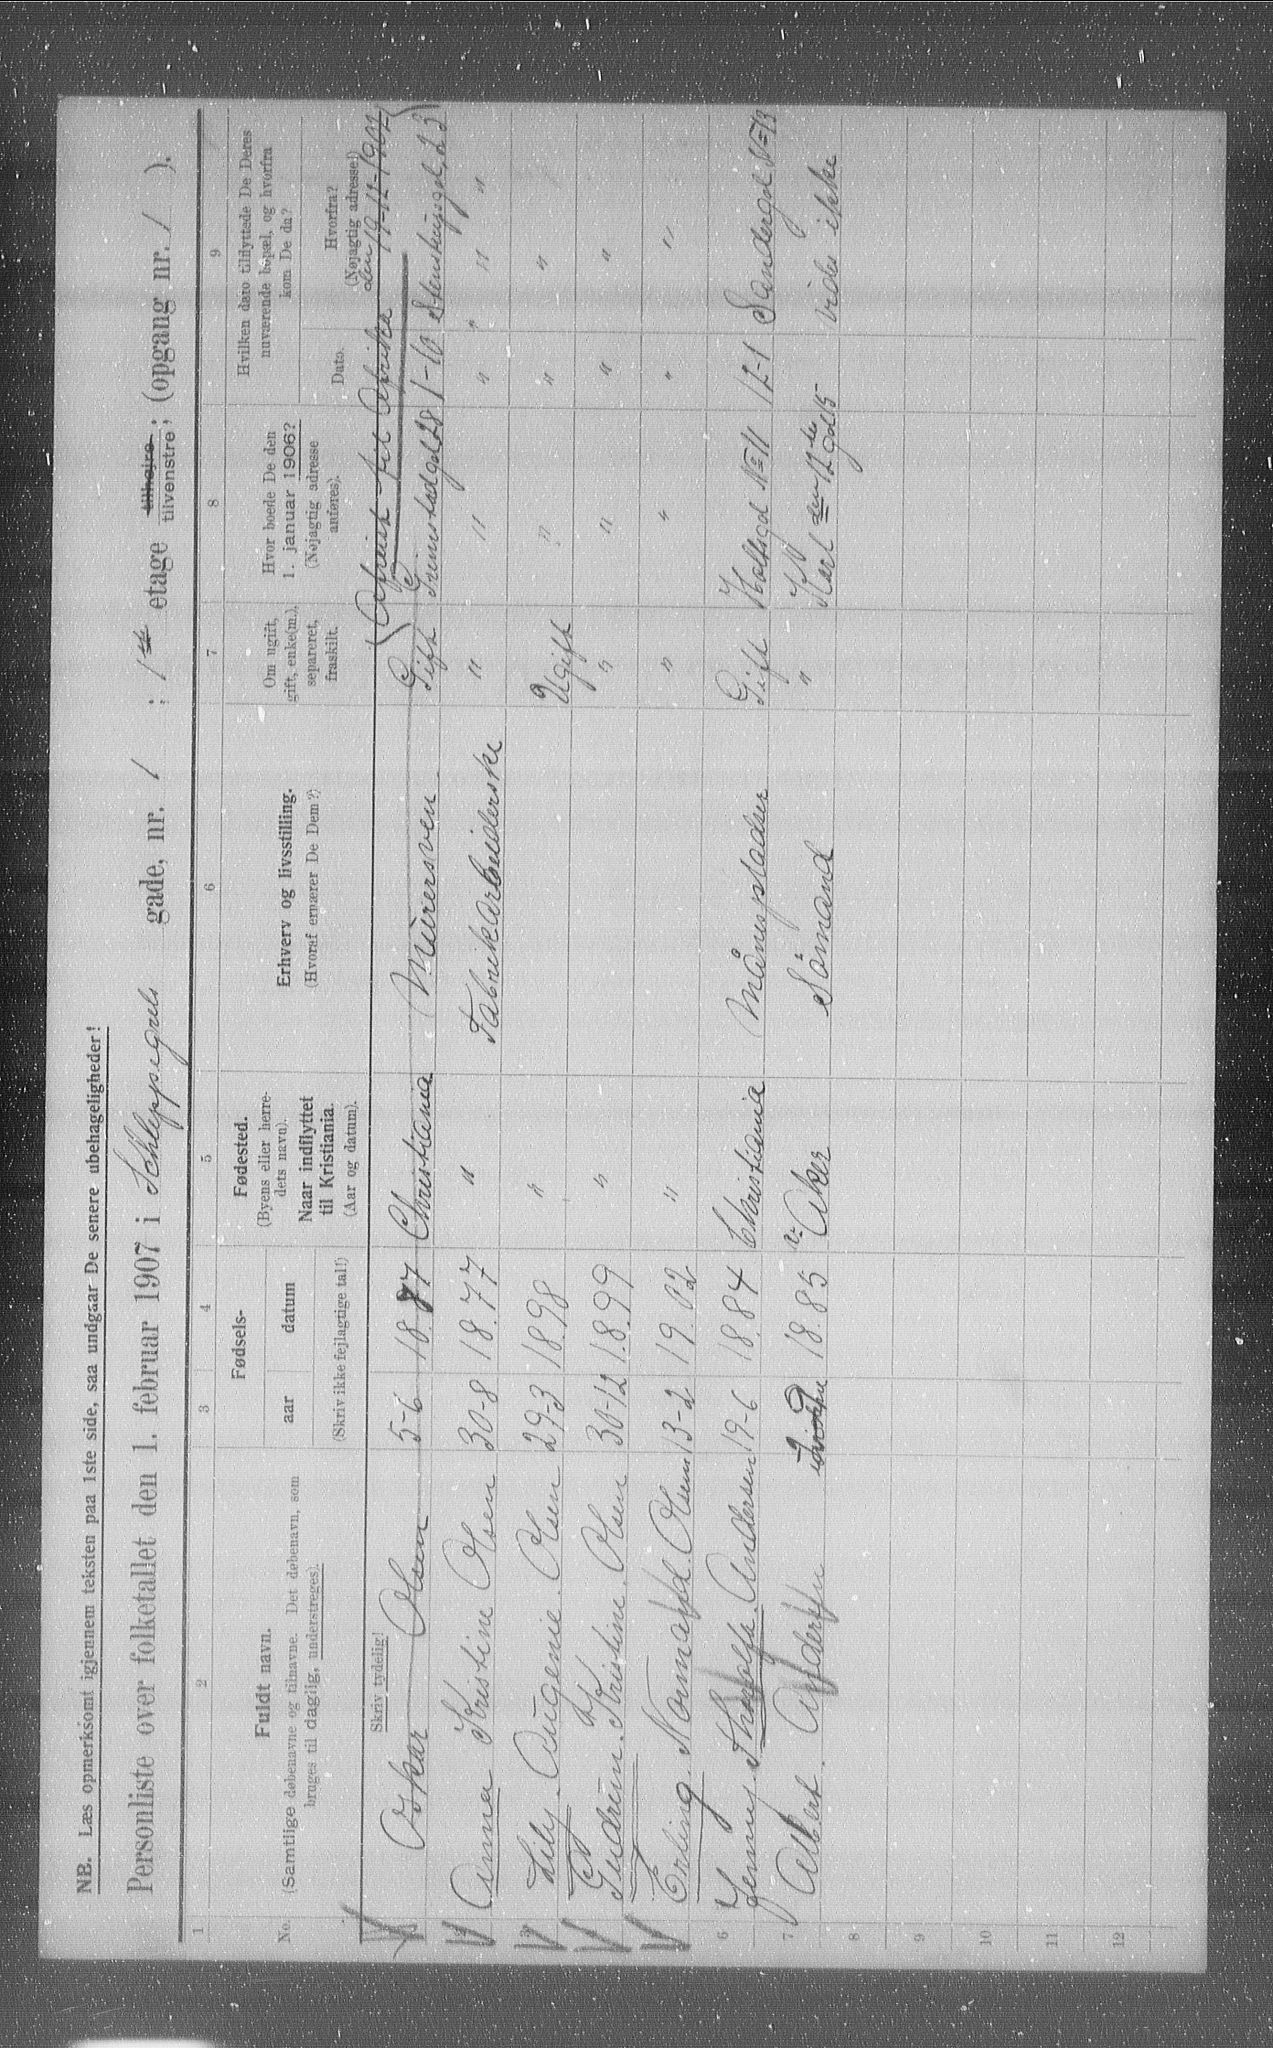 NB. Læs opmerksomt igjennem teksten paa 1ste side, saa undgaar De senere ubehageligheder!
Personliste over folketallet den 1. februar 1907 i Schleppegrels gade, nr. 1 ; 1ste etage tilhøjre tilvenstre ; (opgang nr. 1 ).
1 2 3 4 5 6 7 8 9
No. Fuldt navn. (Samtlige døbenavne og tilnavne. Det døbenavn, som bruges til daglig, understreges). Fødsels- aar datum (Skriv ikke fejlagtige tal!) Fødested. (Byens eller herredets navn). Naar indflyttet til Kristiania. (Aar og datum). Erhverv og livsstilling. (Hvoraf ernærer De Dem?) Om ugift, gift, enke(m.), separeret, fraskilt. Hvor boede De den 1. januar 1906? (Nøjagtig adresse anføres). Hvilken dato tilflyttede De Deres nuværende bopæl, og hvorfra kom De da? Dato. Hvorfra? (Nøjagtig adresse!)
Skriv tydelig!
(Afreist til Afrika den 19-12-1902)
Oskar Olsen 5-6 18.77 Christiania Murersven Gift Grimstadgd 28 1-10 Stenstrupgd. 23
2 Anna Kristine Olsen 30-8 18.77 " Fabrikarbeiderske " " " " " "
3 Lily. Augenie. Olsen 29-3 18.98 " Ugift " " "
Gudrun. Kristine. Olsen 30-12 18.99 " " " " "
Erling. Normand. Olsen 13-2 19.02 " " " " "
6 Jenny. Thvolfa. Andersen 19-6 18.84 Christiania Månespladser Gift Holtsgd No 11 12-1 Sandergd No 13
7 Albert. Andersen 18.85 v. Aker Sömand " Karl den 12te gd 15 vides ikke
8
9
10
11
12